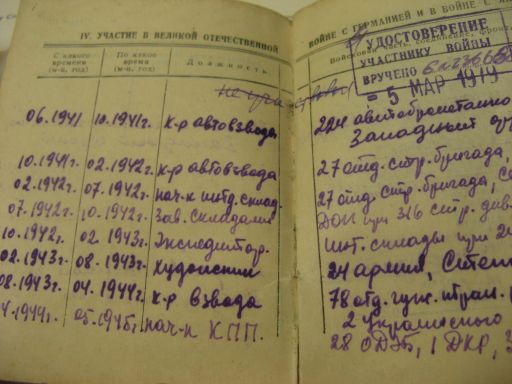 IV. УЧАСТИЕ В ВЕЛИКОЙ ОТЕЧЕСТВЕННОЙ
С какого времени (м-ц, год)
По какое время (м-ц, год)
Должность
06.1941 10.1941г. к-р автовзвода
10.1941г. 02.1942г. к-р автовзвода
02.1942г. 07.1942г. нач-к инт. склад.
07.1942г. 10.1942г. зав. складами
10.1942г. 02.1943г. Экспедитор.
02.1943г. 08.1943г. Художник
08.1943г. 04.1944г. к-р взвода
4.1944г. 05.1945г. нач-к КПП.
ВОЙНЕ С ГЕРМАНИЕЙ И В ВОЙНЕ С
УДОСТОВЕРЕНИЕ
УЧАСТНИКУ ВОЙНЫ
ВРУЧЕНО
- 5 МАР 1979
Западный
27 отд. стр. бригада,
27 отд. стр. бригада,
ДОП при 316 стр. див.
инт. склады при
24 армии,
78 отд.
2 Украинского
28 ОДЭБ, 1 ДКР,